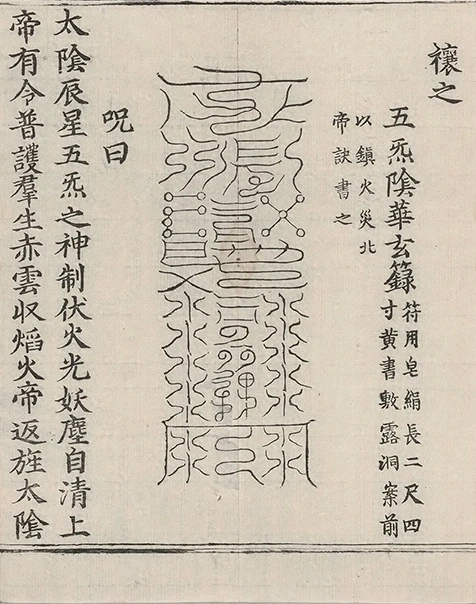 禳之
五炁陰華玄籙
符用皂絹長二尺四
寸黃書敷露洞案前
以鎮火災北
帝訣書之
咒曰
太陰辰星五炁之神制伏火光妖塵自清上
帝有令普護羣生赤雲収熖火帝返旌太陰